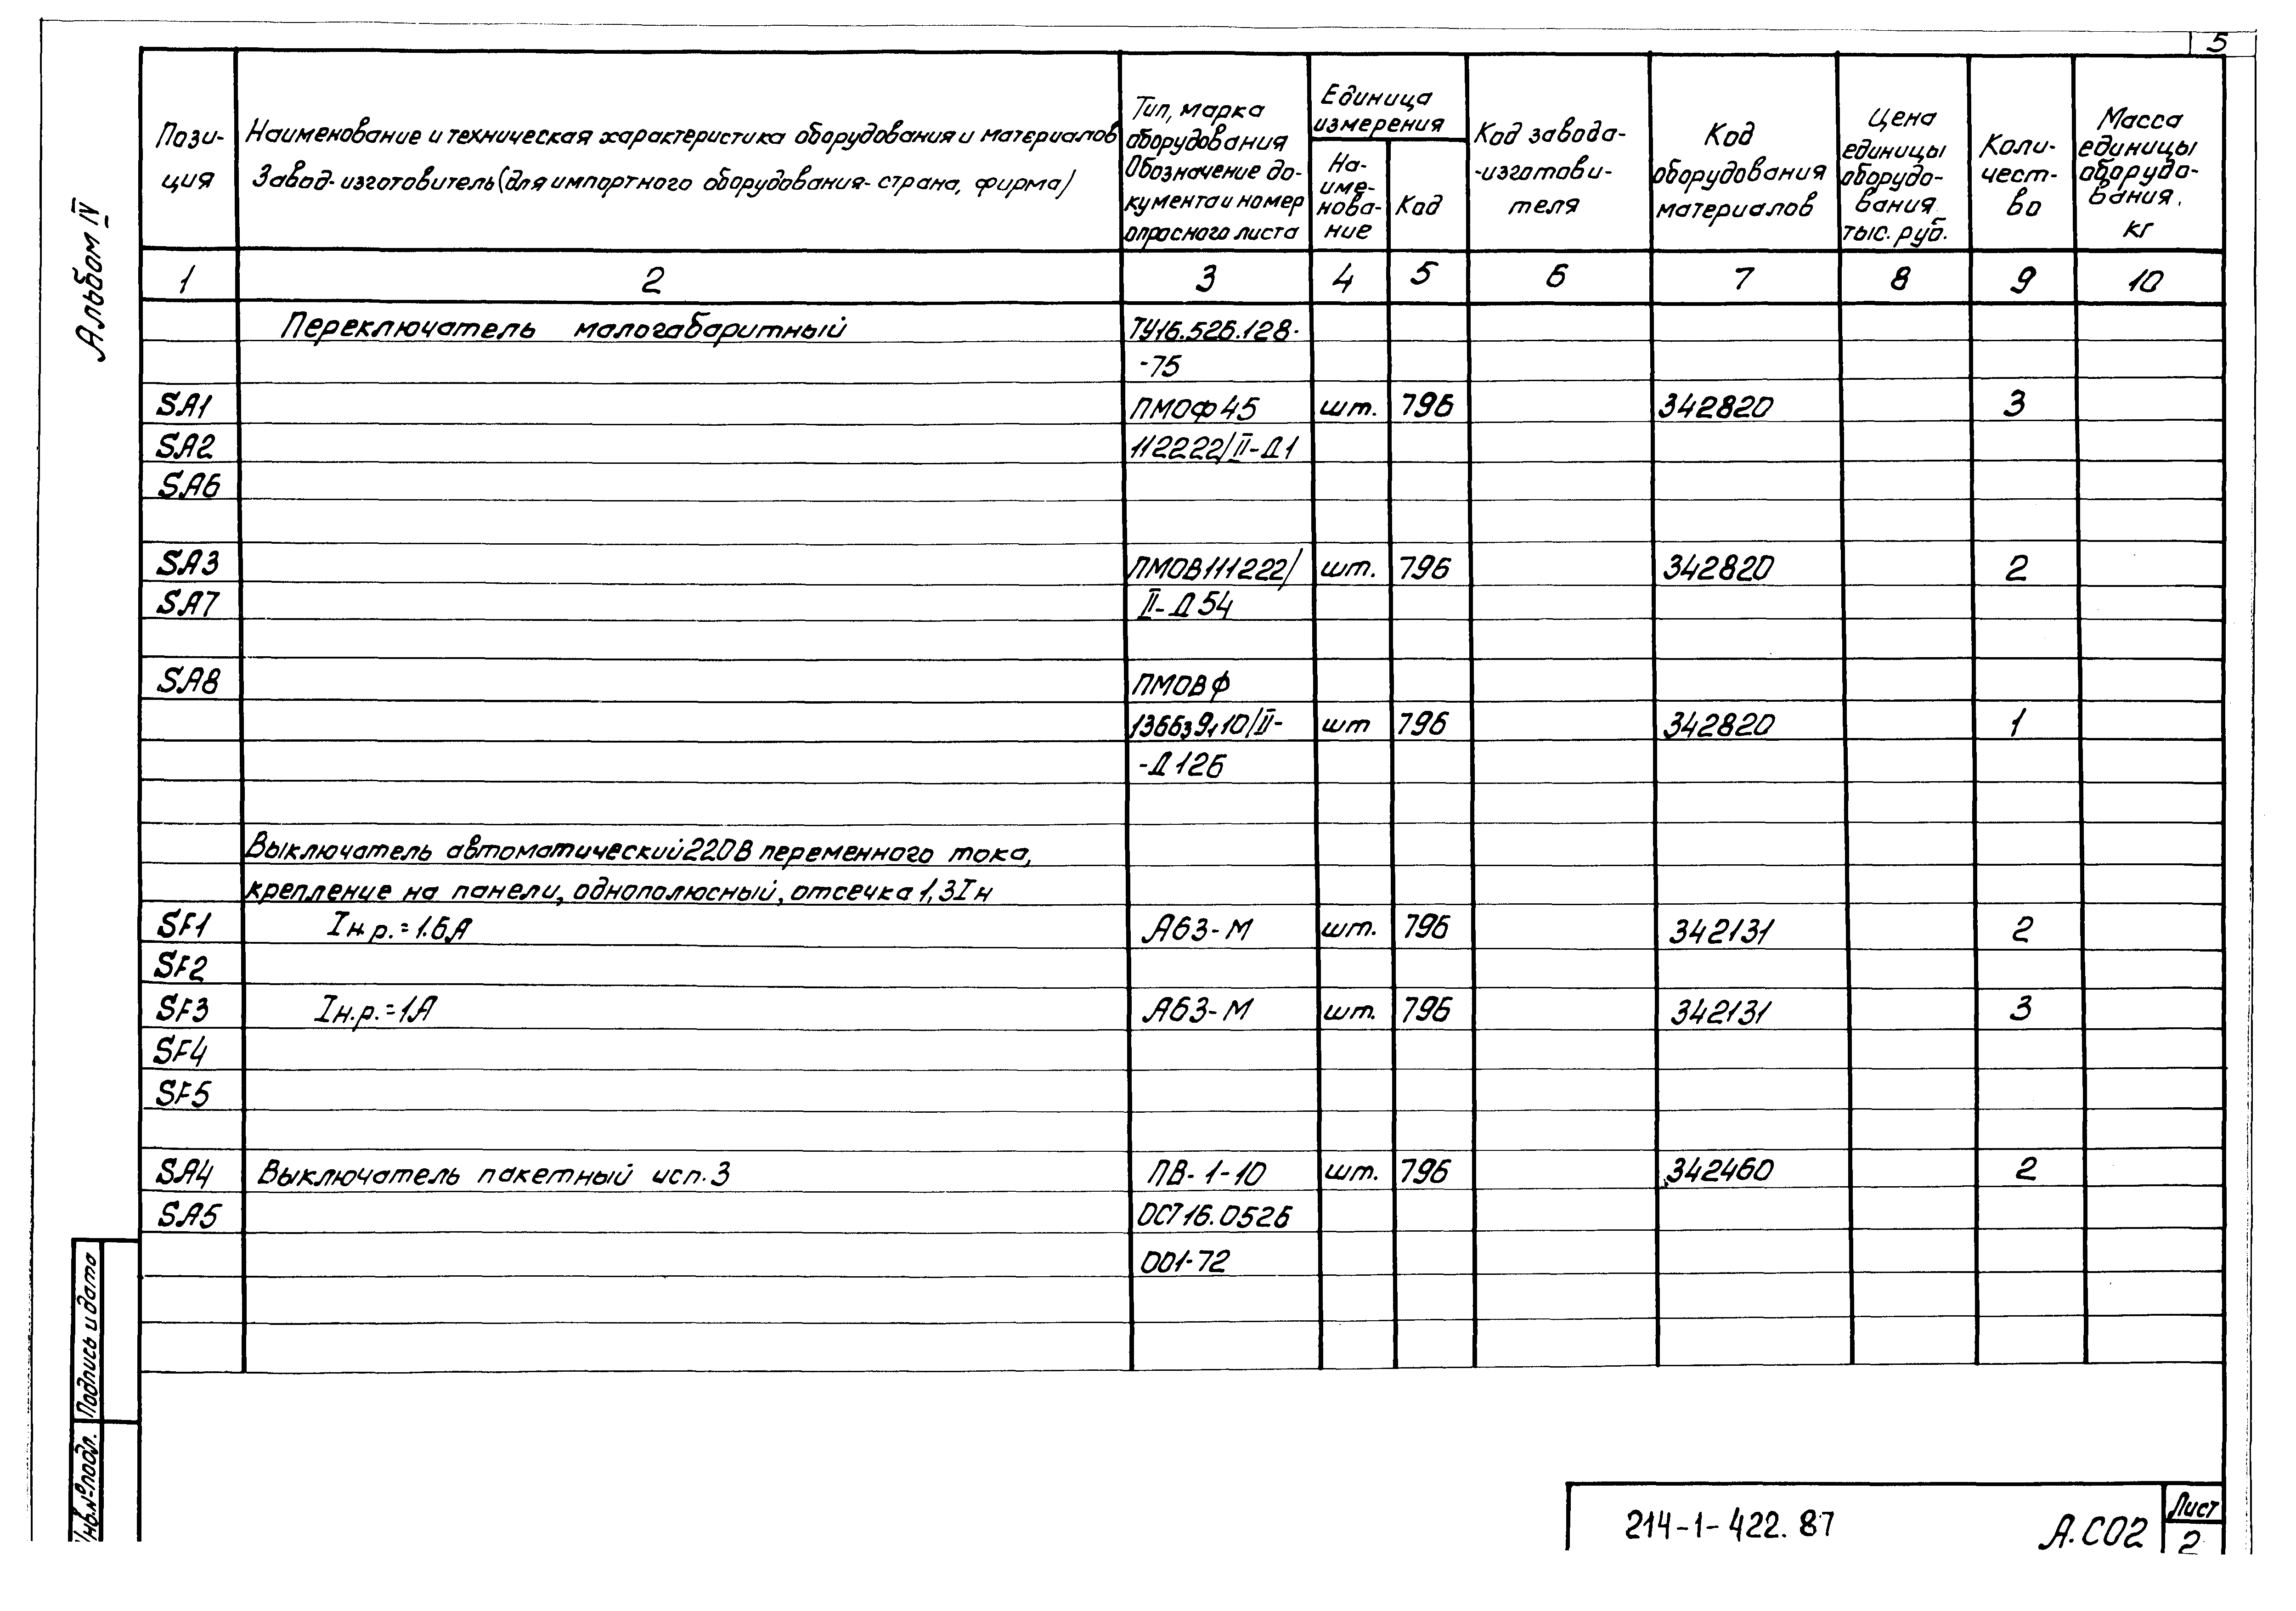 5
Альбом IV
Пози-
ция
Наименование и техническая характеристика оборудования и материалов
Завод-изготовитель (для импортного оборудования- страна, фирма)
Тип, марка
оборудования
Обозначение до-
кумента и номер
опросного листа
Единица
измерения
На-
име-
нова-
ние
Код
Код завода-
-изготови-
теля
Код
оборудования
материалов
Цена
единицы
оборудо-
вания.
тыс. руб.
Коли-
чест-
во
Масса
единицы
оборудо-
вания,
кг
1 2 3 4 5 6 7 8 9 10
Переключатель малогабаритный ТУ16.526.128-
-75
SA1 ПМОФ45 шт. 796 342820 3
SA2 112222/II-Д1
SA6
SA3 ПМОВ111222/ шт. 796 342820 2
SA7 II-Д54
SA8 ПМОВФ
136639,10/II- шт 796 342820 1
-Д126
Выключатель автоматический 220В переменного тока,
крепление на панели, однополюсный, отсечка 1,3Iн
SF1 Iн.р.=1.6А А63-М шт. 796 342131 2
SF2
SF3 Iн.р.=1А А63-М шт. 796 342131 3
SF4
SF5
SA4 Выключатель пакетный исп.3 ПВ-1-10 шт. 796 342460 2
SA5 ОСТ16.0526
001-72
Подпись и дата
Инв.№подл.
214-1-422.87 А.СО2 Лист
2